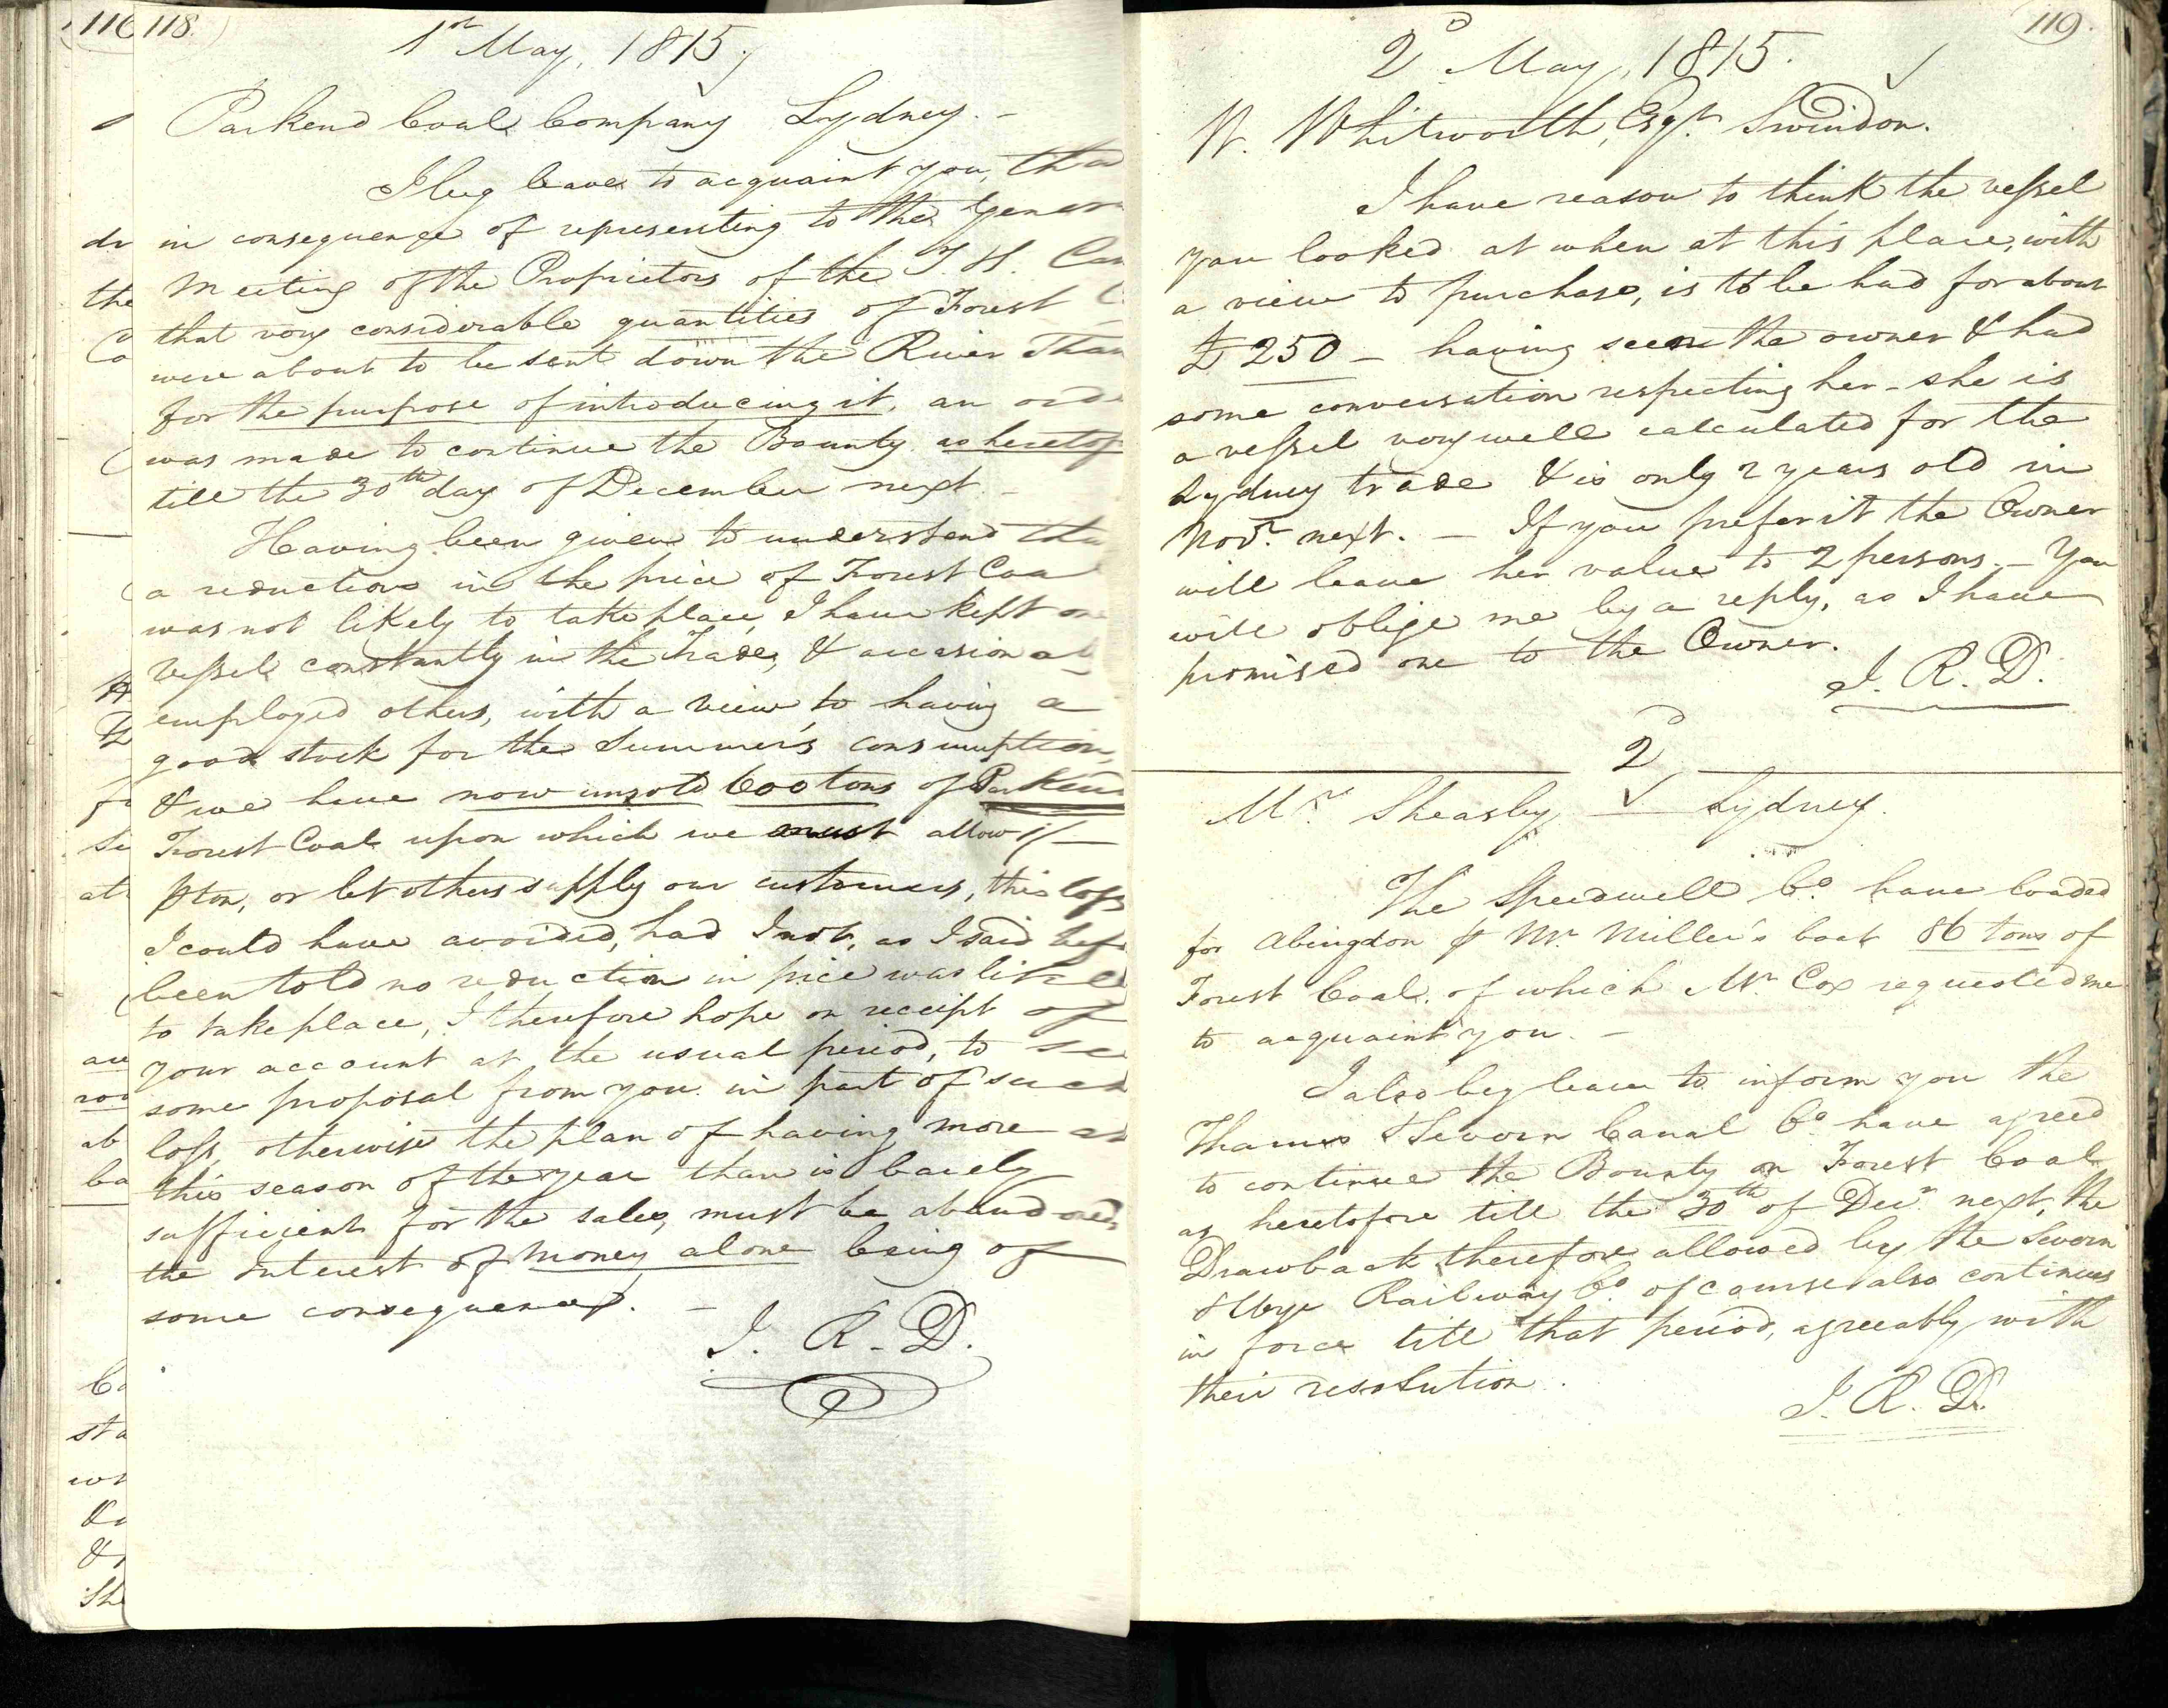 116 118.
1st May, 1815.
Parkend Coal Company Lydney. -
I beg leave to acquaint you, tha
in consequence of representing to the Gener
Meeting of the Proprietors of the T. & S. Can
that very considerable quantities of Forest C
were about to be sent down the River Tham
for the purpose of introducing it, an orde
was made to continue the Bounty as heretof
till the 30th day of December next -
Having been given to understand tha
a reduction in the price of Forest Coa
was not likely to take place, I have kept on
Vessel constantly in the Trade, & occasional
employed others, with a view to having a
good stock for the Summer's consumption,
& we have now unsold 600 tons of Parkend
Forest Coal upon which we must allow 1/-
pton, or let others supply our customers, this loss
I could have avoided, had I not, as I said bef
been told no reduction in price was likel
to take place, I therefore hope on receipt of
your account at the usual period, to se
some proposal from you in part of such
loss, otherwise the plan of having more at
this season of the year than is barely
sufficient for the sales, must be abandoned
the Interest of Money alone being of
some consequence. -
J. R. D.
dr
the
Co
fr
Se
at
are
ab
ba
Co
sta
wh
&
She
119.
2d May, 1815.
W. Whitworth, Esqr. Swindon.
I have reason to think the vessel
you looked at when at this place, with
a view to purchase, is to be had for about
£250 - having seen the owner & had
some conversation respecting her - she is
a vessel very well calculated for the
Lydney trade & is only 2 years old in
Novr. next. - If you prefer it the Owner
will leave her value to 2 persons. - You
will oblige me by a reply, as I have
promised one to the Owner.
J. R. D.
2d
Mr. Sheasby Lydney.
The Speedwell Co. have loaded
for Abingdon p Mr. Miller's boat 86 tons of
Forest Coal. of which Mr. Cox requested me
to acquaint you. -
I also beg leave to inform you the
Thames & Severn Canal Co. have agreed
to continue the Bounty on Forest Coal
as heretofore till the 30th of Decr. next, the
Drawback therefore allowed by the Severn
& Wye Railway Co. of course also continues
in force till that period, agreeably with
their resolution.
J. R. D.